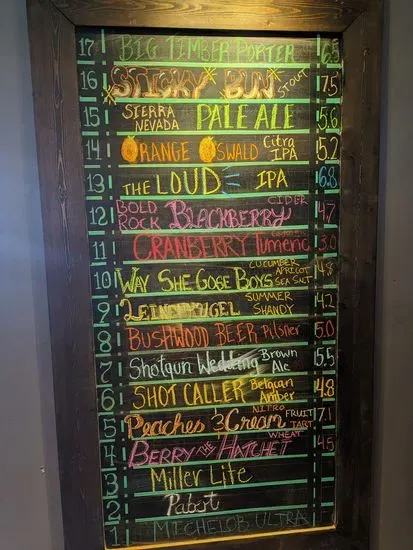 17 BIG TIMBER PORTER 6.5
16 STICKY BUN STOUT 7.5
15 SIERRA NEVADA PALE ALE 5.6
14 ORANGE OSWALD Citra IPA 5.2
13 THE LOUD IPA 6.8
12 BOLD ROCK BLACKBERRY CIDER 4.7
11 CRANBERRY Tumeric 3.0
10 WAY SHE GOSE BOYS CUCUMBER APRICOT SEA SALT 4.8
9 LEINENKUGEL SUMMER SHANDY 4.2
8 BUSHWOOD BEER Pilsner 5.0
7 Shotgun Wedding Brown Ale 5.5
6 SHOT CALLER Belgian Amber 4.8
5 Peaches & Cream NITRO FRUIT TART 7.1
4 BERRY THE HATCHET WHEAT 4.5
3 Miller Lite
2 Pabst
1 MICHELOB ULTRA